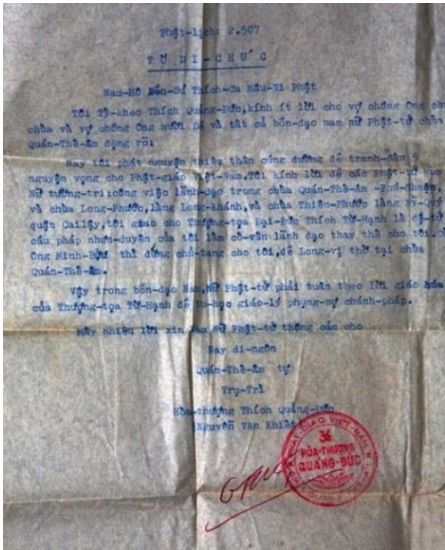 Phật-lịch: 2.507
TỜ DI-CHÚC
Nam-Mô Bổn-Sư Thích-Ca Mâu-Ni Phật
Tôi Tỳ-kheo Thích Quảng-Đức, kính ít lời cho vợ chồng Ông chủ
chùa và vợ chồng Ông mười Dê và tất cả bổn-đạo nam nữ Phật-tử chùa
Quán-Thế-Âm đặng rõ:
Nay tôi phát nguyện thiêu thân cúng dường để tranh-đấu 5
nguyện vọng cho Phật-giáo Việt-Nam. Tôi kính lời để các Phật-tử Nam
Nữ tường-tri: công việc lãnh-đạo trong chùa Quán-Thế-Âm Phú-Nhuận
và chùa Long-Phước, làng Long-Khánh, và chùa Thiên-Phước làng
quận Cailậy, tôi giao cho Thượng-tọa Đại-Đức Thích Từ-Hạnh là
cầu pháp nhơn-duyên của tôi làm cố-vấn lãnh đạo thay thế cho tôi.
Ông Minh-Bửu thì đừng cho tôi, để Long-vị thờ tại chùa
Quán-Thế-Âm.
Vậy trong bổn-đạo Nam, Nữ Phật-tử phải tuân theo lời giáo
của Thượng-tọa Từ-Hạnh để tu-học giáo-lý phụng-sự chánh-pháp.
Mấy nhiêu lời xin Nam Nữ Phật-tử thông cảm cho
Nay di-ngôn
Quán-Thế-Âm tự
Trụ-Trì
Hòa-thượng Thích Quảng-Đức
Nguyễn Văn Khiết
GIÁO VIỆT-NAM
HÒA-THƯỢNG
QUẢNG-ĐỨC